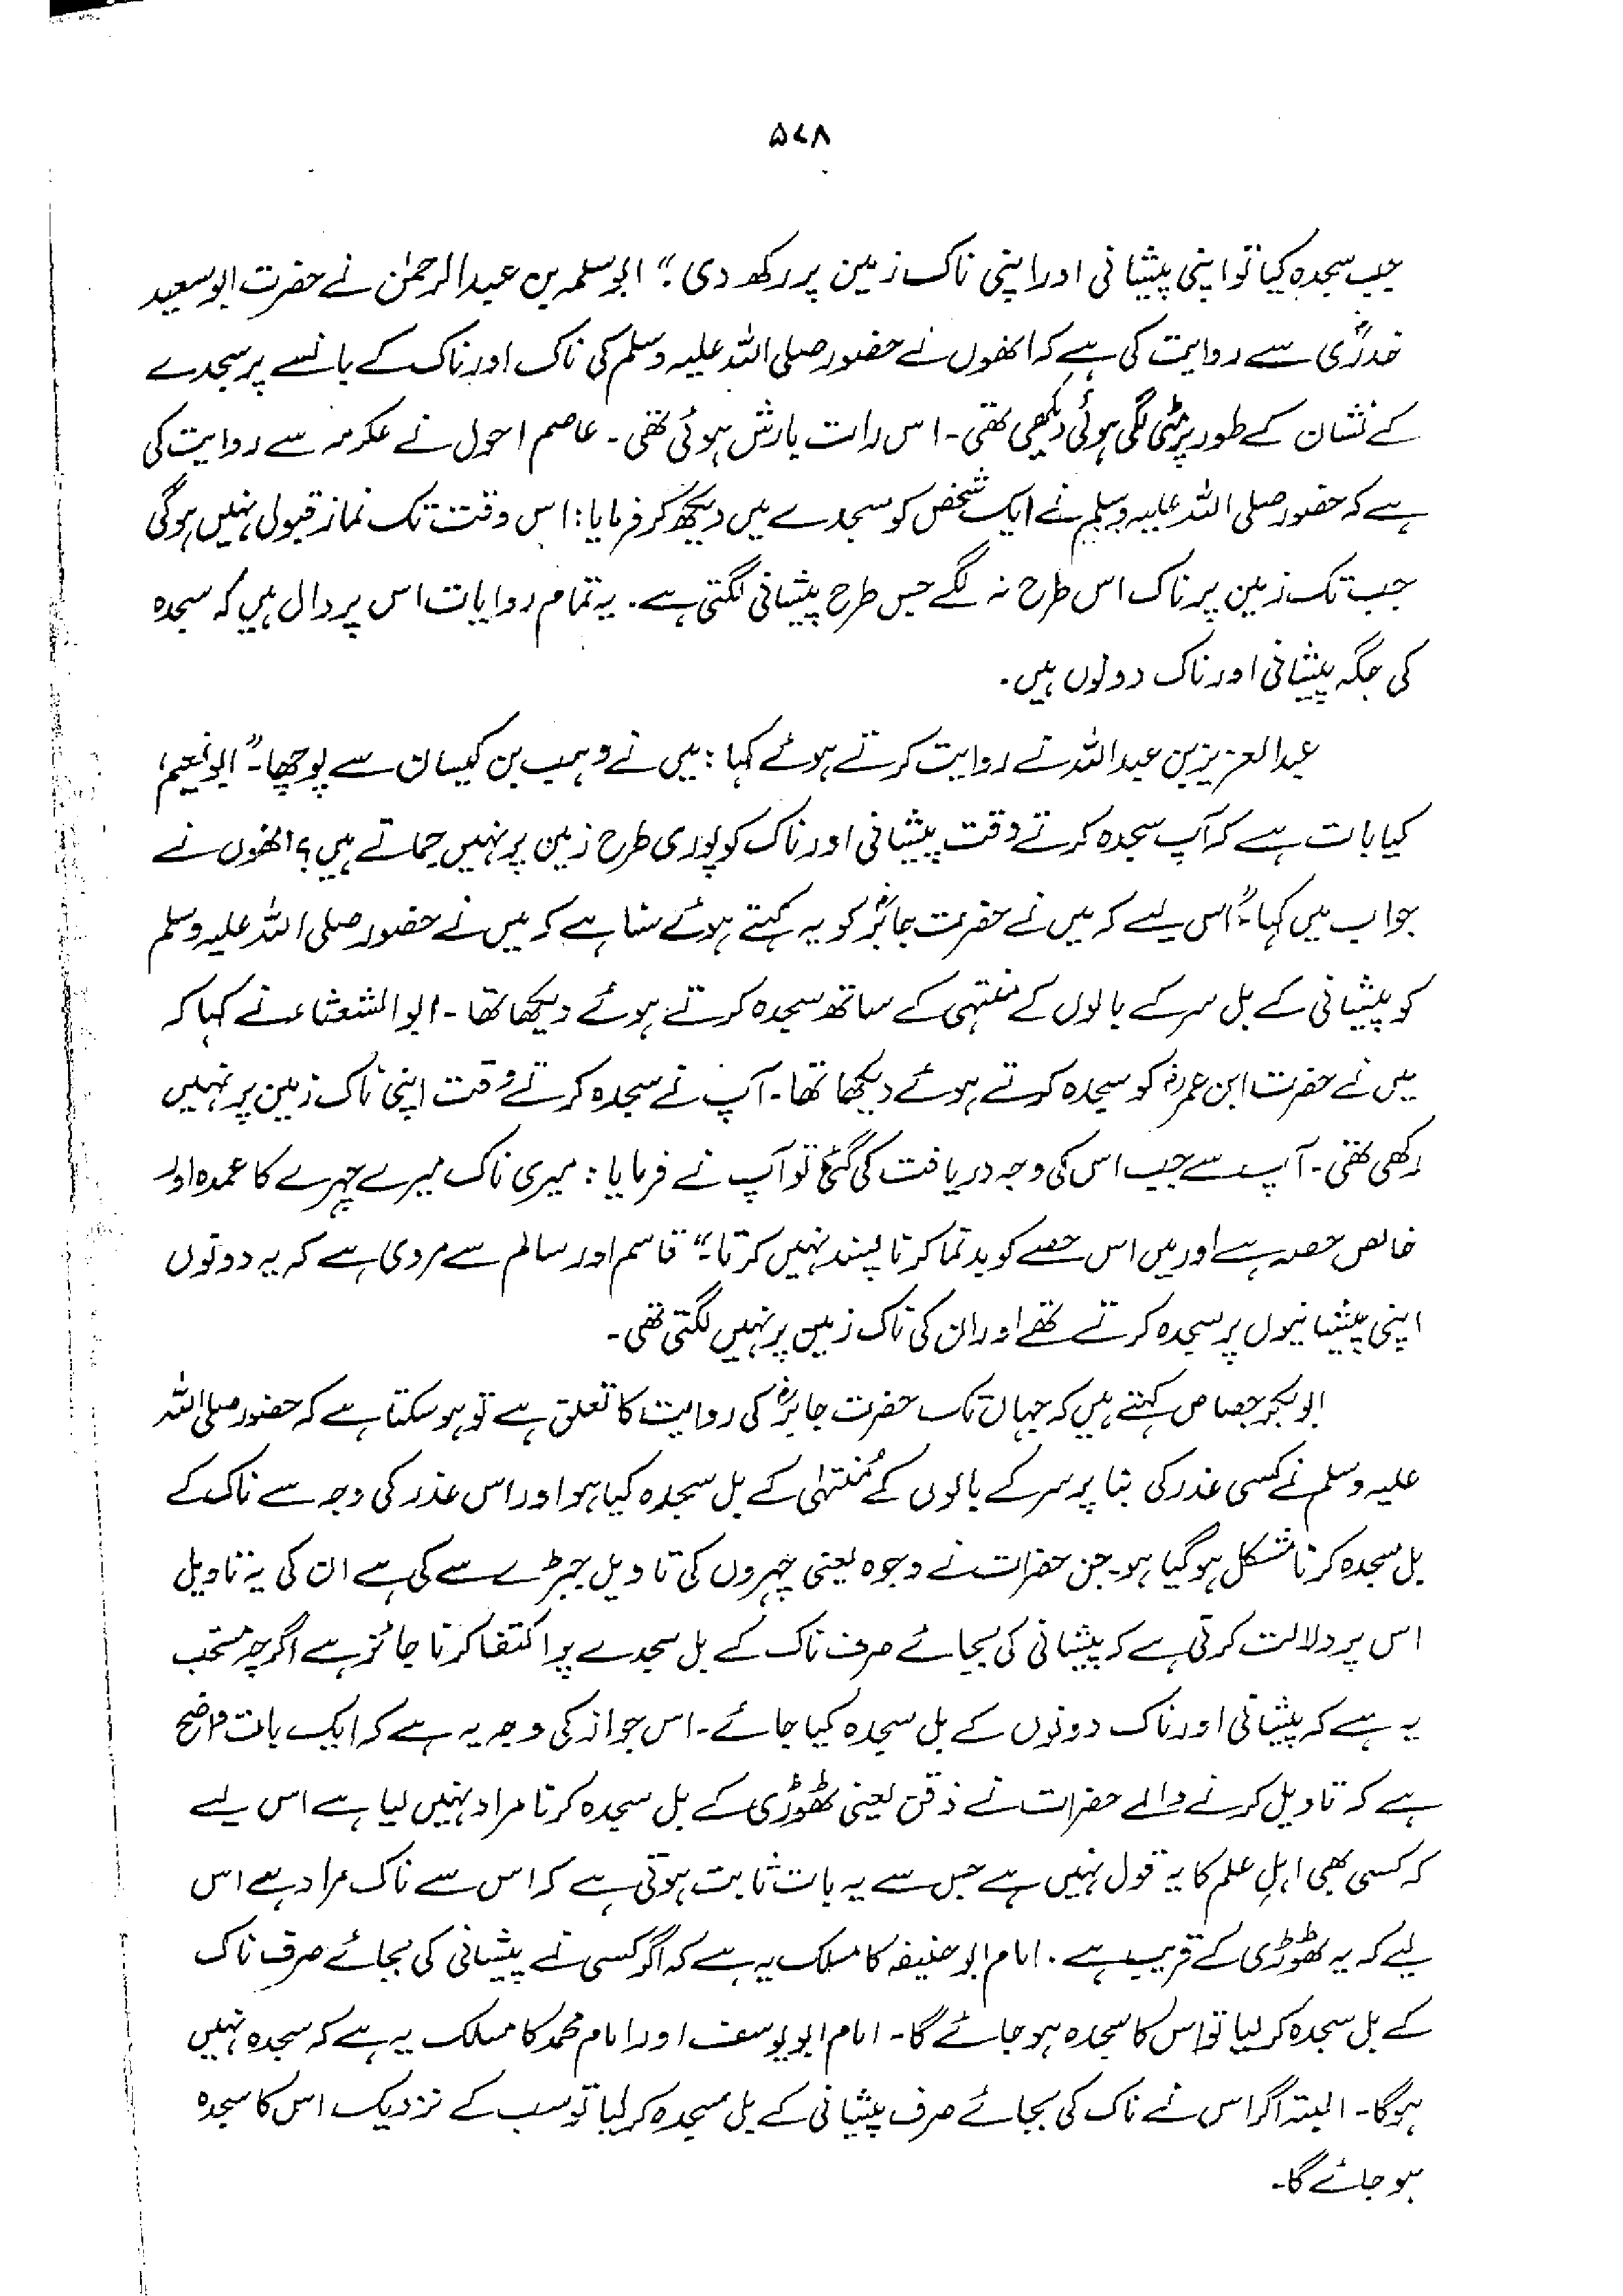 ۵۷۸
جب سجدہ کیا تو اپنی پیشانی اور اپنی ناک زمین پر رکھ دی؛" ابوسلمہ بن عبدالرحمٰن نے حضرت ابوسعید
خدریؓ سے روایت کی ہے کہ انھوں نے حضور صلی اللہ علیہ وسلم کی ناک اور ناک کے بانسے پر سجدے
کے نشان کے طور پر مٹی لگی ہوئی دیکھی تھی۔ اس رات بارش ہوئی تھی۔ عاصم احول نے عکرمہ سے روایت کی
ہے کہ حضور صلی اللہ علیہ وسلم نے ایک شخص کو سجدے میں دیکھ کر فرمایا: اس وقت تک نماز قبول نہیں ہوگی
جب تک زمین پر ناک اس طرح نہ لگے جس طرح پیشانی لگتی ہے۔ یہ تمام روایات اس پر دال ہیں کہ سجدہ
کی جگہ پیشانی اور ناک دونوں ہیں۔
عبدالعزیز بن عبداللہ نے روایت کرتے ہوئے کہا: میں نے وہب بن کیسان سے پوچھا۔" ابونعیم،
کیا بات ہے کہ آپ سجدہ کرتے وقت پیشانی اور ناک کو پوری طرح زمین پر نہیں جماتے ہیں؟ انھوں نے
جواب میں کہا۔" اس لیے کہ میں نے حضرت جابرؓ کو یہ کہتے ہوئے سنا ہے کہ میں نے حضور صلی اللہ علیہ وسلم
کو پیشانی کے بل سر کے بالوں کے منتہی کے ساتھ سجدہ کرتے ہوئے دیکھا تھا۔ ابوالشعثاء نے کہا کہ
میں نے حضرت ابن عمرؓ کو سجدہ کرتے ہوئے دیکھا تھا۔ آپ نے سجدہ کرتے وقت اپنی ناک زمین پر نہیں
رکھی تھی۔ آپ سے جب اس کی وجہ دریافت کی گئی تو آپ نے فرمایا: میری ناک میرے چہرے کا عمدہ اور
خالص حصہ ہے اور میں اس حصے کو بدنما کرنا پسند نہیں کرتا۔" قاسم اور سالم سے مروی ہے کہ یہ دونوں
اپنی پیشانیوں پر سجدہ کرتے تھے اور ان کی ناک زمین پر نہیں لگتی تھی۔
ابوبکر جصاص کہتے ہیں کہ جہاں تک حضرت جابرؓ کی روایت کا تعلق ہے تو ہو سکتا ہے کہ حضور صلی اللہ
علیہ وسلم نے کسی عذر کی بنا پر سر کے بالوں کے مُنتہٰی کے بل سجدہ کیا ہو اور اس عذر کی وجہ سے ناک کے
بل سجدہ کرنا مشکل ہو گیا ہو۔ جن حضرات نے وجوہ یعنی چہروں کی تاویل جبڑے سے کی ہے ان کی یہ تاویل
اس پر دلالت کرتی ہے کہ پیشانی کی بجائے صرف ناک کے بل سجدے پر اکتفا کرنا جائز ہے اگرچہ مستحب
یہ ہے کہ پیشانی اور ناک دونوں کے بل سجدہ کیا جائے۔ اس جواز کی وجہ یہ ہے کہ ایک بات واضح
ہے کہ تاویل کرنے والے حضرات نے ذقن یعنی ٹھوڑی کے بل سجدہ کرنا مراد نہیں لیا ہے اس لیے
کہ کسی بھی اہلِ علم کا یہ قول نہیں ہے جس سے یہ بات ثابت ہوتی ہے کہ اس سے ناک مراد ہے اس
لیے کہ یہ ٹھوڑی کے قریب ہے۔ امام ابو حنیفہ کا مسلک یہ ہے کہ اگر کسی نے پیشانی کی بجائے صرف ناک
کے بل سجدہ کر لیا تو اس کا سجدہ ہو جائے گا۔ امام ابو یوسف اور امام محمد کا مسلک یہ ہے کہ سجدہ نہیں
ہوگا۔ البتہ اگر اس نے ناک کی بجائے صرف پیشانی کے بل سجدہ کر لیا تو سب کے نزدیک اس کا سجدہ
ہو جائے گا۔